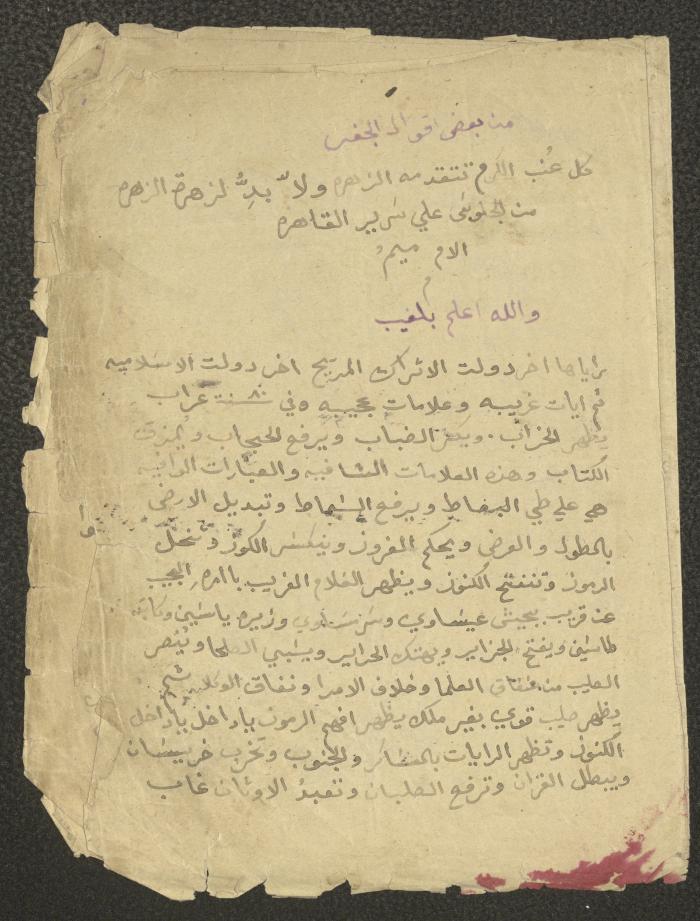 من بعض اقوال الجفر
كل عنب الكرم تتقدمه الزهره ولا بدُّ لزهرة الزهره
من الجلوس علي سرير القاهره
الام ميم
م
والله اعلم بلغيب
اخر دولت الاتراك المريخ اخر دولت الاسلاميه
ثم ايات غريبه وعلامات عجيبه وفي سنة غراب
يظهر الخراب ويكثر الضباب ويرفع الحيجاب ويمزق
الكتاب وهذه العلامات الشافيه والعبارات الوافيه
هي علي طي البصاط ويرفع السماط وتبديل الارض
بالطول والعرض ويحكم القرون وينكسر الكوز وتنحل
الرموز وتنفتح الكنوز ويظهر الغلام الغريب بالمره العجيب
عن قريب بجيش عيساوي وزيره ياسين وكاتبه
طاسين ويفتح الجزاير ويهتك الحراير ويسبي الصلحا وينصر
الصليب من نفاق العلما وخلاف الامرا ونفاق الوكلا ثم
يظهر صليب قوي بغير ملك يظهر افهم الرموز ياداخل ياداخل
الكنوز وتظهر الرايات بالعساكر والجنوب وتخرب خريسان
ويبطل القران وترفع الصلبان وتعبدُ الاوثان غاب